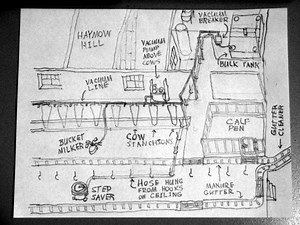 HAYMOW
HILL
VACUUM
PUMP
ABOVE
COWS
VACUUM
BREAKER
BULK TANK
VACUUM
LINE
BUCKET
MILKER
COW
STANCHIONS
CALF
PEN
GUTTER
CLEANER
STEP
SAVER
HOSE HUNG
FROM HOOKS
ON CEILING
MANURE
GUTTER